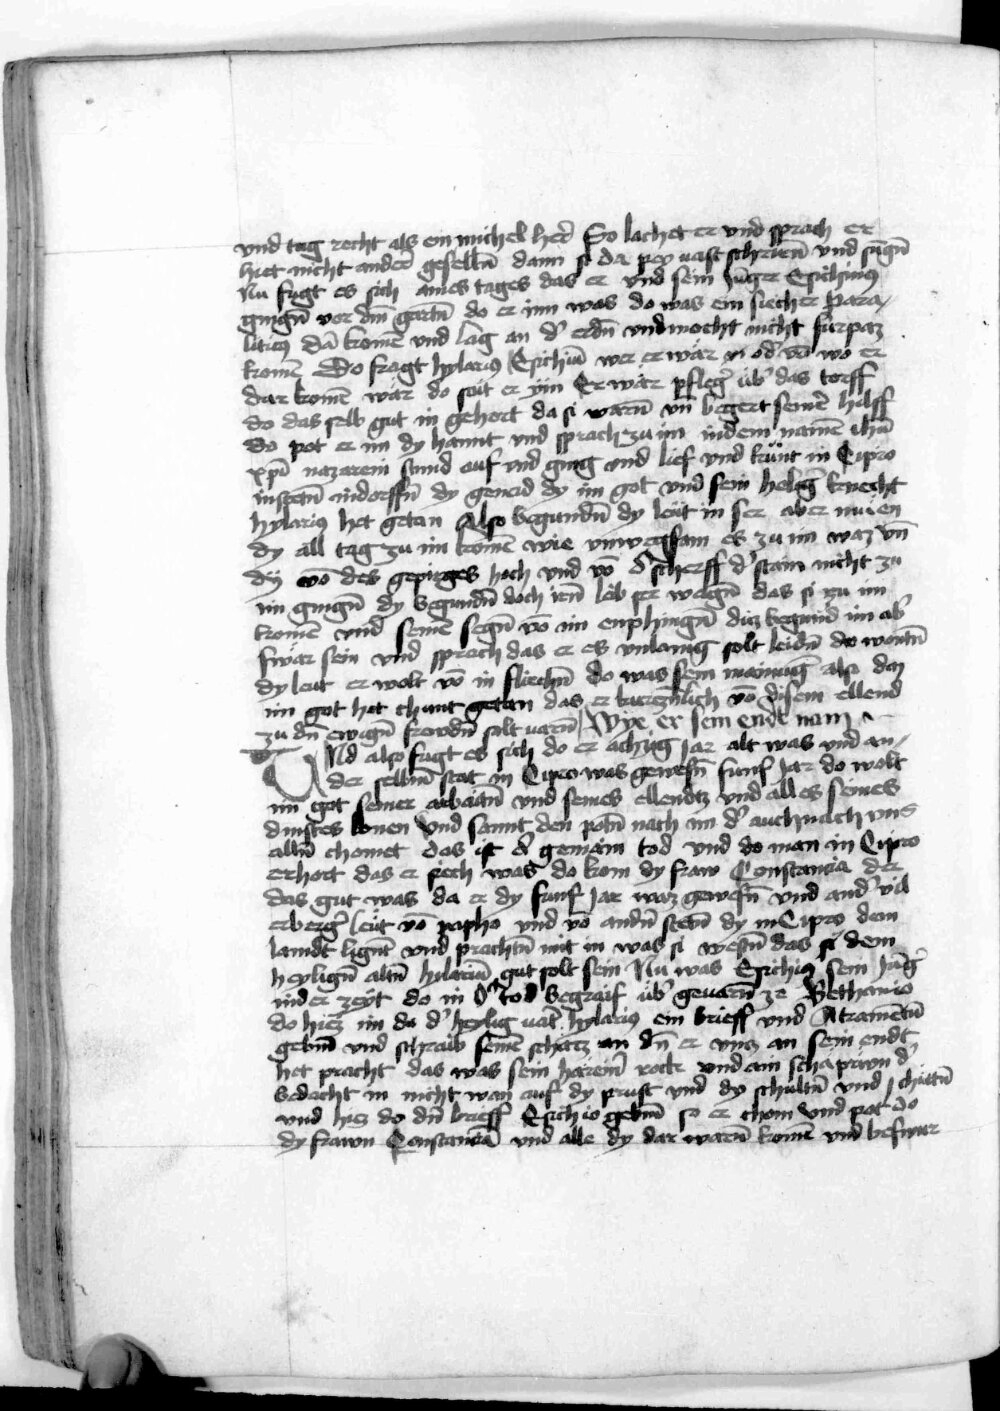 vnd tag recht als ein michel her So lachet er vnd sprach er
hiet nicht ander geselln̄ dann si da pey vast schriern̄ vnd sūgn̄
Nu fugt es sich aines tages das er vnd sein Jūger Esichius
gingn̄ vor dm̄ gartn̄ do er inn was do was ein siecher para/
liticus dā komē vnd lag an d' erdn̄ vnd mocht nicht fürpaz
komē Do fragt hylarius Esichiū wer er wär od' vō wo er
dar komē wär do seit er ym Er wär pfleger üb' das torff
do das selb gut in gehort da si warn̄ vn̄ begert seiner hilff
do pot er im dy hannt vnd sprach zu im in dem namē ihū
xpi nazareni stand auf vnd ging vnd lief vnd kunt in Cipro
in stetn̄ in dorffn̄ dy genad dy im got vnd sein helig' knecht
hylarius het getan Also begundn̄ dy leüt in ser aber muien
dy all tag zu im komē wie vnwegsam es zu im waz vn̄
dy vō des gepirges hoch vnd vō d' scherff d' stain nicht zu
im gingn̄ dy begundn̄ doch irn̄ leib ser wagn̄ das si zu im
komē vnd seinē segn̄ vō im enphingn̄ diz begund im ab'
swär sein vnd sprach das er es vnlanng solt leidn̄ do wontn̄
dy leut er wolt vō in fliechn̄ do was sein mainūg also daz
im got het chunt getan das er kurczn̄lich vō disem ellend
zu dn̄ ewign̄ frewdn̄ solt varn̄ Wye er sein ende nam
VNd also fugt es sich do er achzig Jar alt was vnd an/
der selbm̄ stat in Cipro was gewesn̄ funf Jar do wolt
im got seiner arbaitn̄ vnd seines ellendtz vnd alles seines
dinstes lonen Vnd sannt den potn̄ nach im d' auch nach vns
alln̄ chomet das ist d' gemain tod vnd do man in Cipro
erhort das er siech was do kom dy fraw Constancia der
das gut was da er dy funf Jar waz gewesn̄ vnd and' vil
erberg' leüt vō papho vnd vō andn̄ stetn̄ dy in Cipro dem
lanndt lignt vnd prachtn̄ mit in was si westn̄ das si dem
heylign̄ altn̄ hylariū gut solt sein Nu was Esichius sein Jūg'
in der zeyt do in d' tod begraif üb' gevarn̄ ze Bethanio
do hiez im da d' heylig vat' hylarius ein brieff vnd Atramētū
gebm̄ vnd schraib seinē schatz an dn̄ er vncz an sein endt
het pracht das was sein härein' rock vnd ain schäpriwn d'
bedacht in nicht wan auf dy prust vnd dy schultn̄ vnd
vnd hiez do dn̄ brieff Esichio gebm̄ so er chom Vnd pot do
dy frawn Constanciā vnd alle dy dar warn̄ komē vnd beswur